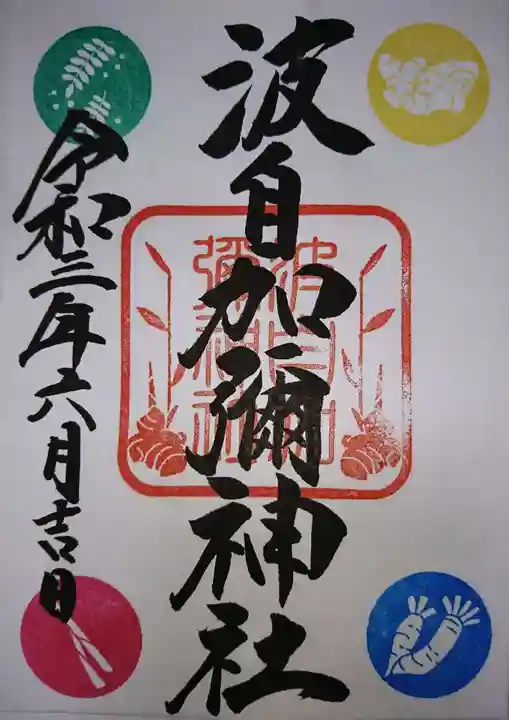 波自加彌神社
波自加彌神社
令和三年六月吉日